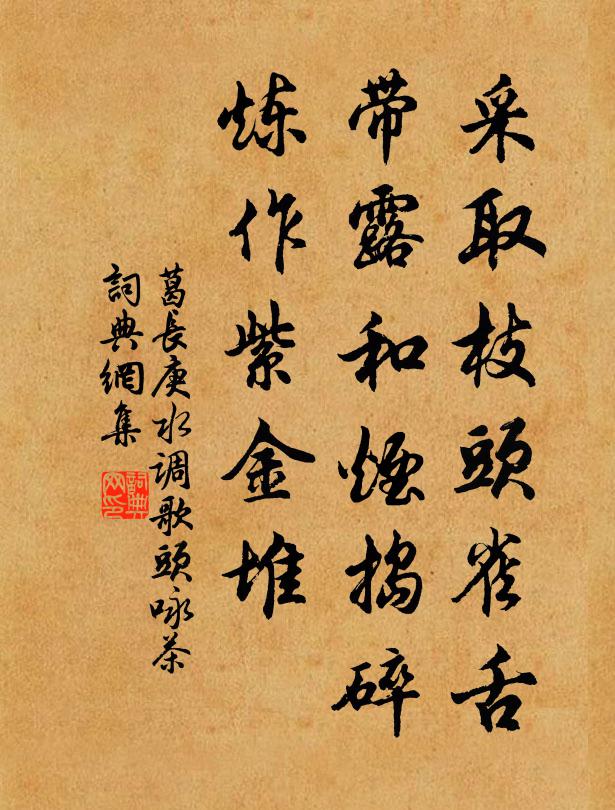 采取枝頭雀舌
带露和煙搗碎
炼作紫金堆
葛長庚水调歌頭咏茶
詞典網集
詞典
网印